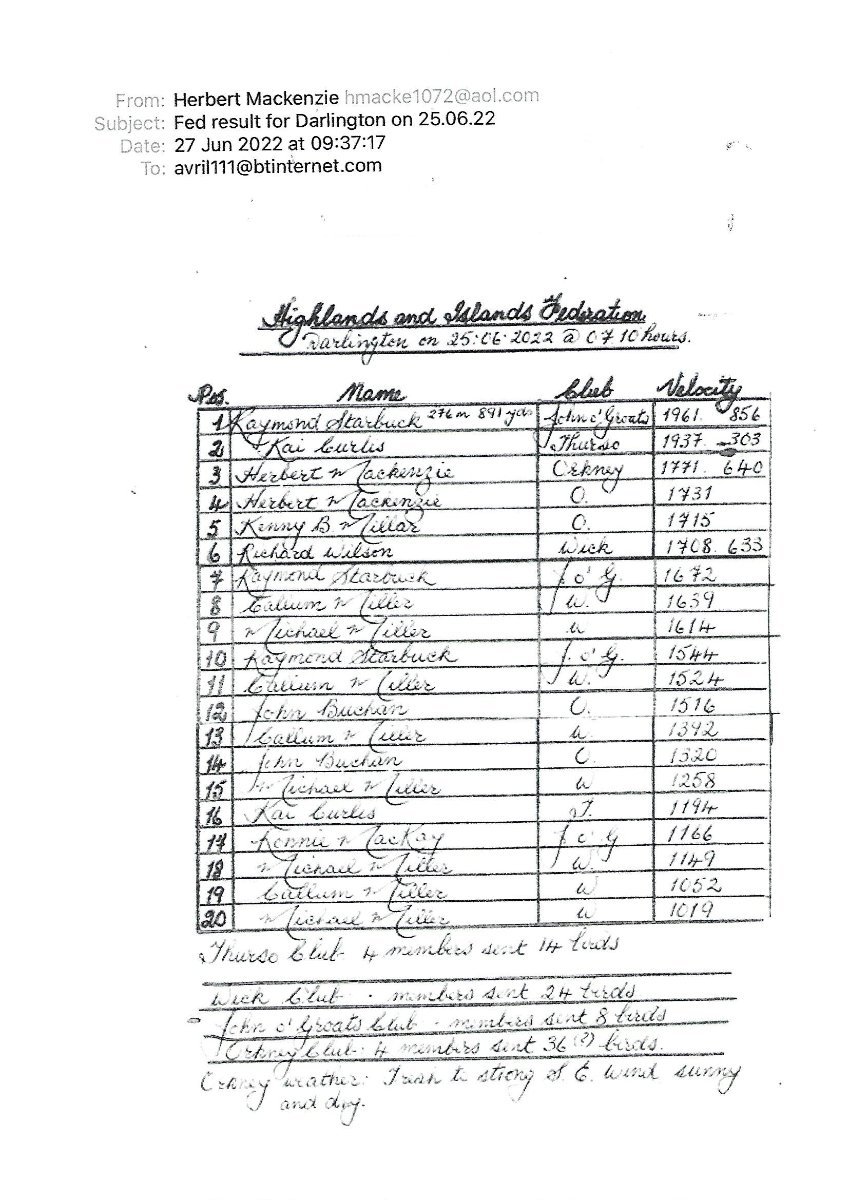 From: Herbert Mackenzie hmacke1072@aol.com
Subject: Fed result for Darlington on 25.06.22
Date: 27 Jun 2022 at 09:37:17
To: avril111@btinternet.com
Highlands and Islands Federation
Darlington on 25:06:2022 @ 07 10 hours.
Pos. Name Club Velocity
1 Raymond Starbuck 276 m 891 yds John o' Groats 1961. 856
2 Kai Curtis Thurso 1937. 303
3 Herbert Mackenzie Orkney 1771. 640
4 Herbert Mackenzie O. 1731
5 Kenny B Millar O. 1715
6 Richard Wilson Wick 1708. 633
7 Raymond Starbuck J. o' G. 1672
8 Callum Miller W. 1639
9 Michael Miller W 1614
10 Raymond Starbuck J. o' G. 1544
11 Callum Miller W. 1524
12 John Buchan O. 1516
13 Callum Miller W 1392
14 John Buchan O. 1320
15 Michael Miller W 1258
16 Kai Curtis T. 1194
17 Kennie MacKay J o' G 1166
18 Michael Miller W. 1149
19 Callum Miller W 1052
20 Michael Miller W 1019
Thurso Club 4 members sent 14 birds
Wick Club - members sent 24 birds
John o' Groats Club - members sent 8 birds
Orkney Club. 4 members sent 36 (?) birds.
Orkney weather: Fresh to strong S. E. wind sunny
and dry.